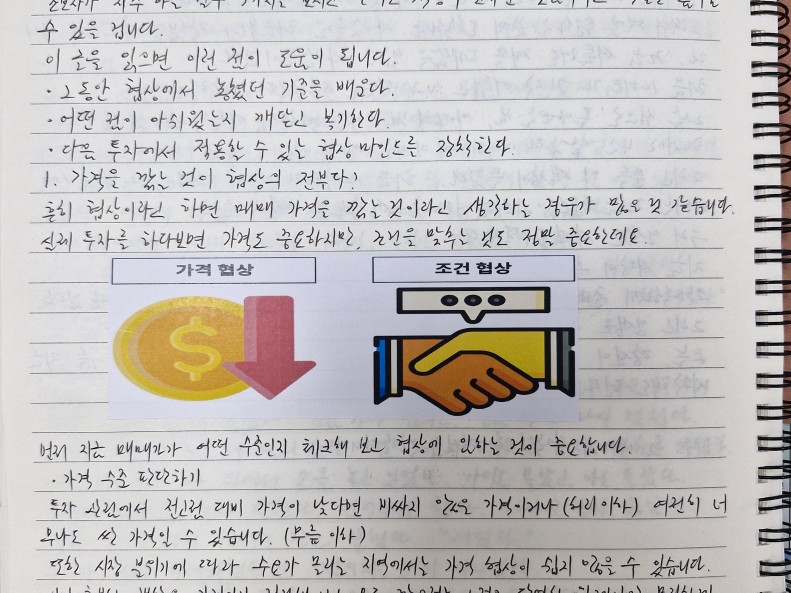 수 있을 겁니다.
이 글을 읽으면 이런 점이 도움이 됩니다.
· 그동안 협상에서 놓쳤던 기준을 배운다.
· 어떤 점이 아쉬웠는지 깨닫고 복기한다.
· 다음 투자에서 적용할 수 있는 협상 마인드를 장착한다.
1. 가격을 깎는 것이 협상의 전부다?
흔히 협상이라고 하면 매매 가격을 깎는 것이라고 생각하는 경우가 많은 것 같습니다.
실제 투자를 하다보면 가격도 중요하지만, 조건을 맞추는 것도 정말 중요한데요.
가격 협상
조건 협상
먼저 지금 매매가가 어떤 수준인지 체크해 보고 협상에 임하는 것이 중요합니다.
· 가격 수준 판단하기
투자 관점에서 전고점 대비 가격이 낮다면 비싸지 않은 가격이거나 (허리 이하) 여전히 너
무나도 싼 가격일 수 있습니다. (무릎 이하)
또한 시장 분위기에 따라 수요가 몰리는 지역에서는 가격 협상이 쉽지 않을 수 있습니다.